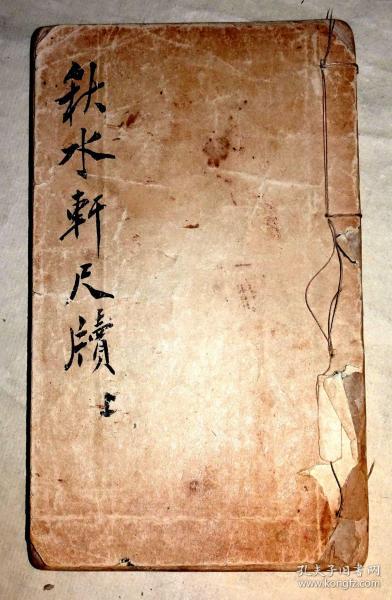 秋水軒尺牘
上
孔夫子旧书网
www.kongfz.com